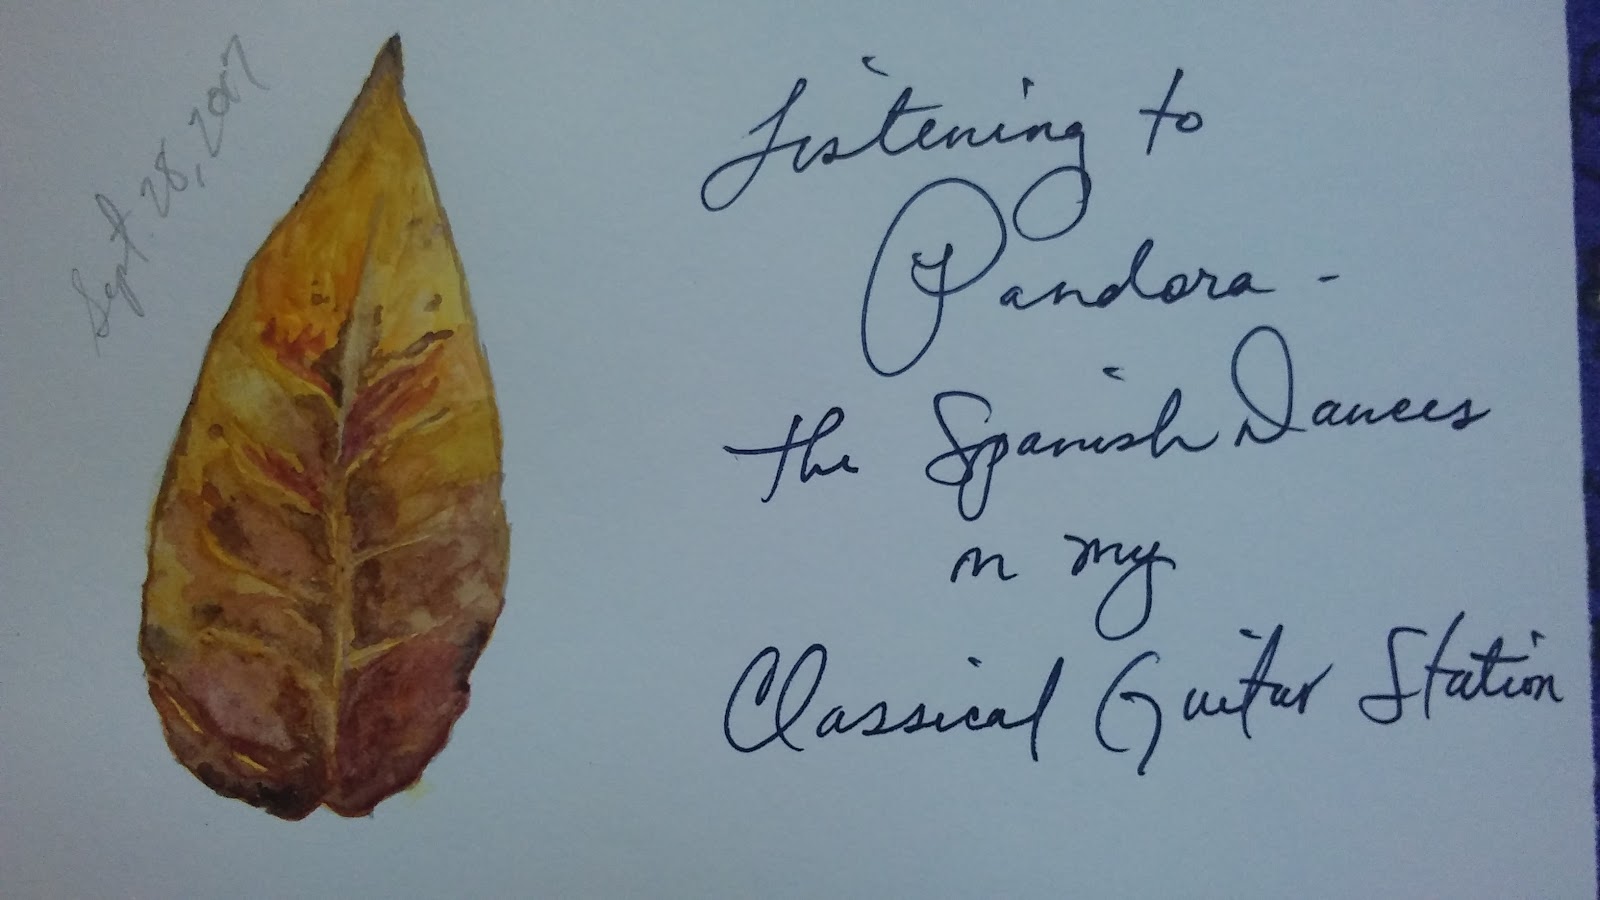 Sept. 28, 2017
Listening to
Pandora -
the Spanish Dances
on my
Classical Guitar Station